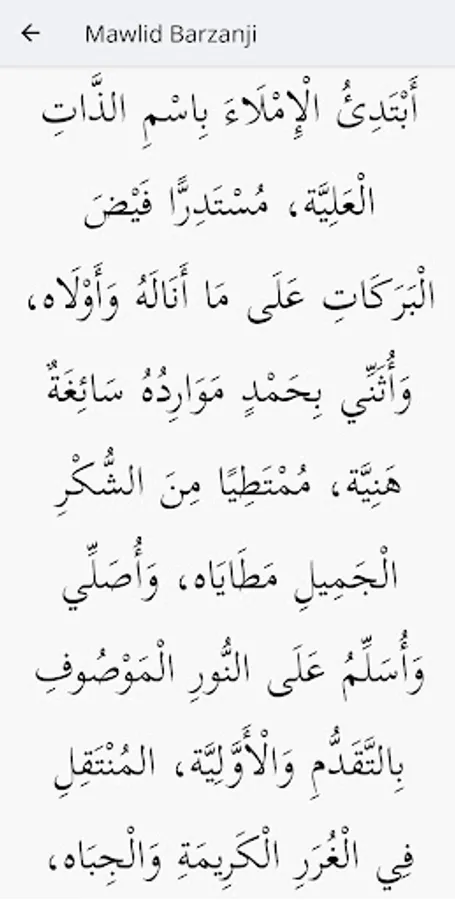 Mawlid Barzanji
أَبْتَدِئُ الْإِمْلَاءَ بِاسْمِ الذَّاتِ
الْعَلِيَّة، مُسْتَدِرًّا فَيْضَ
الْبَرَكَاتِ عَلَى مَا أَنَالَهُ وَأَوْلَاه،
وَأُثَنِّي بِحَمْدٍ مَوَارِدُهُ سَائِغَةٌ
هَنِيَّة، مُمْتَطِيًا مِنَ الشُّكْرِ
الْجَمِيلِ مَطَايَاه، وَأُصَلِّي
وَأُسَلِّمُ عَلَى النُّورِ الْمَوْصُوفِ
بِالتَّقَدُّمِ وَالْأَوَّلِيَّة، المُنْتَقِلِ
فِي الْغُرَرِ الْكَرِيمَةِ وَالْجِبَاه،